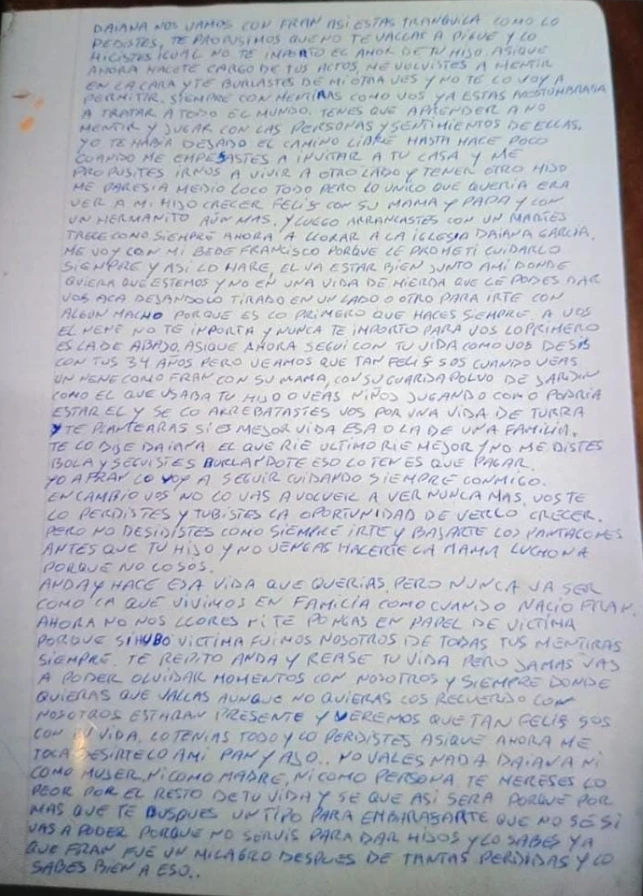 DAIANA NOS VAMOS CON FRAN ASI ESTAS TRANQUILA COMO LO
PEDISTES, TE PROPUSIMOS QUE NO TE VALLAS A PIQUE Y LO
HICISTES IGUAL NO TE IMPORTO EL AMOR DE TU HIJO. ASIQUE
AHORA HACETE CARGO DE TUS ACTOS, ME VOLVISTES A MENTIR
EN LA CARA Y TE BURLASTES DE MI OTRA VES Y NO TE LO VOY A
PERMITIR. SIEMPRE CON MENTIRAS COMO VOS YA ESTAS ACOSTUMBRADA
A TRATAR A TODO EL MUNDO. TENES QUE APRENDER A NO
MENTIR Y JUGAR CON LAS PERSONAS Y SENTIMIENTOS DE ELLAS.
YO TE HABIA DEJADO EL CAMINO LIBRE HASTA HACE POCO
CUANDO ME EMPESASTES A INVITAR A TU CASA Y ME
PROPUSITES IRNOS A VIVIR A OTRO LADO Y TENER OTRO HIJO
ME PARESIA MEDIO LOCO TODO PERO LO UNICO QUE QUERIA ERA
VER A MI HIJO CRECER FELIS CON SU MAMA Y PAPA Y CON
UN HERMANITO AÚN MAS. Y LUEGO ARRANCASTES CON UN MARTES
TRECE COMO SIEMPRE AHORA A LLORAR A LA IGLESIA DAIANA GARCIA.
ME VOY CON MI BEBE FRANCISCO PORQUE LE PROMETI CUIDARLO
SIEMPRE Y ASI LO HARE, EL VA ESTAR BIEN JUNTO AMI DONDE
QUIERA QUE ESTEMOS Y NO EN UNA VIDA DE MIERDA QUE LE PODES DAR
VOS ACA DEJANDOLO TIRADO EN UN LADO O OTRO PARA IRTE CON
ALGUN MACHO PORQUE ES LO PRIMERO QUE HACES SIEMPRE. A VOS
EL NENE NO TE INPORTA Y NUNCA TE IMPORTO PARA VOS LO PRIMERO
ES LA DE ABAJO. ASIQUE AHORA SEGUI CON TU VIDA COMO VOS DESIS
CON TUS 34 AÑOS PERO VEAMOS QUE TAN FELIS SOS CUANDO VEAS
UN NENE COMO FRAN CON SU MAMA, CON SU GUARDA POLVO DE JARDIN
COMO EL QUE USABA TU HIJO O VEAS NIÑOS JUGANDO COMO PODRIA
ESTAR EL Y SE LO ARREBATASTES VOS POR UNA VIDA DE TURRA
Y TE PLANTEARAS SI ES MEJOR VIDA ESA O LA DE UNA FAMILIA.
TE LO DIJE DAIANA EL QUE RIE ULTIMO RIE MEJOR Y NO ME DISTES
BOLA Y SEGUISTES BURLANDOTE ESO LO TENES QUE PAGAR.
YO A FRAN LO VOY A SEGUIR CUIDANDO SIEMPRE CONMIGO.
EN CAMBIO VOS NO LO VAS A VOLVER A VER NUNCA MAS. VOS TE
LO PERDISTES Y TUBISTES LA OPORTUNIDAD DE VERLO CRECER.
PERO NO DESIDISTES COMO SIEMPRE IRTE Y BAJARTE LOS PANTALONES
ANTES QUE TU HIJO Y NO VENGAS HACERTE LA MAMA LUCHONA
PORQUE NO LO SOS.
ANDA Y HACE ESA VIDA QUE QUERIAS. PERO NUNCA VA SER
COMO LA QUE VIVIMOS EN FAMILIA COMO CUANDO NACIO FRAN.
AHORA NO NOS LLORES NI TE PONGAS EN PAPEL DE VICTIMA
PORQUE SI HUBO VICTIMA FUIMOS NOSOTROS DE TODAS TUS MENTIRAS
SIEMPRE. TE REPITO ANDA Y REASE TU VIDA PERO JAMAS VAS
A PODER OLVIDAR MOMENTOS CON NOSOTROS Y SIEMPRE DONDE
QUIERAS QUE VALLAS AUNQUE NO QUIERAS LOS RECUERDO CON
NOSOTROS ESTARAN PRESENTE Y VEREMOS QUE TAN FELIS SOS
CON TU VIDA. LO TENIAS TODO Y LO PERDISTES ASIQUE AHORA ME
TOCA DESIRTELO AMI PAN Y AJO.. NO VALES NADA DAIANA NI
COMO MUJER, NI COMO MADRE, NI COMO PERSONA TE MERESES LO
PEOR POR EL RESTO DE TU VIDA Y SE QUE ASI SERA PORQUE POR
MAS QUE TE BUSQUES UN TIPO PARA EMBARASARTE QUE NO SÉ SI
VAS A PODER PORQUE NO SERVIS PARA DAR HIJOS Y LO SABES YA
QUE FRAN FUE UN MILAGRO DESPUES DE TANTAS PERDIDAS Y LO
SABES BIEN A ESO..